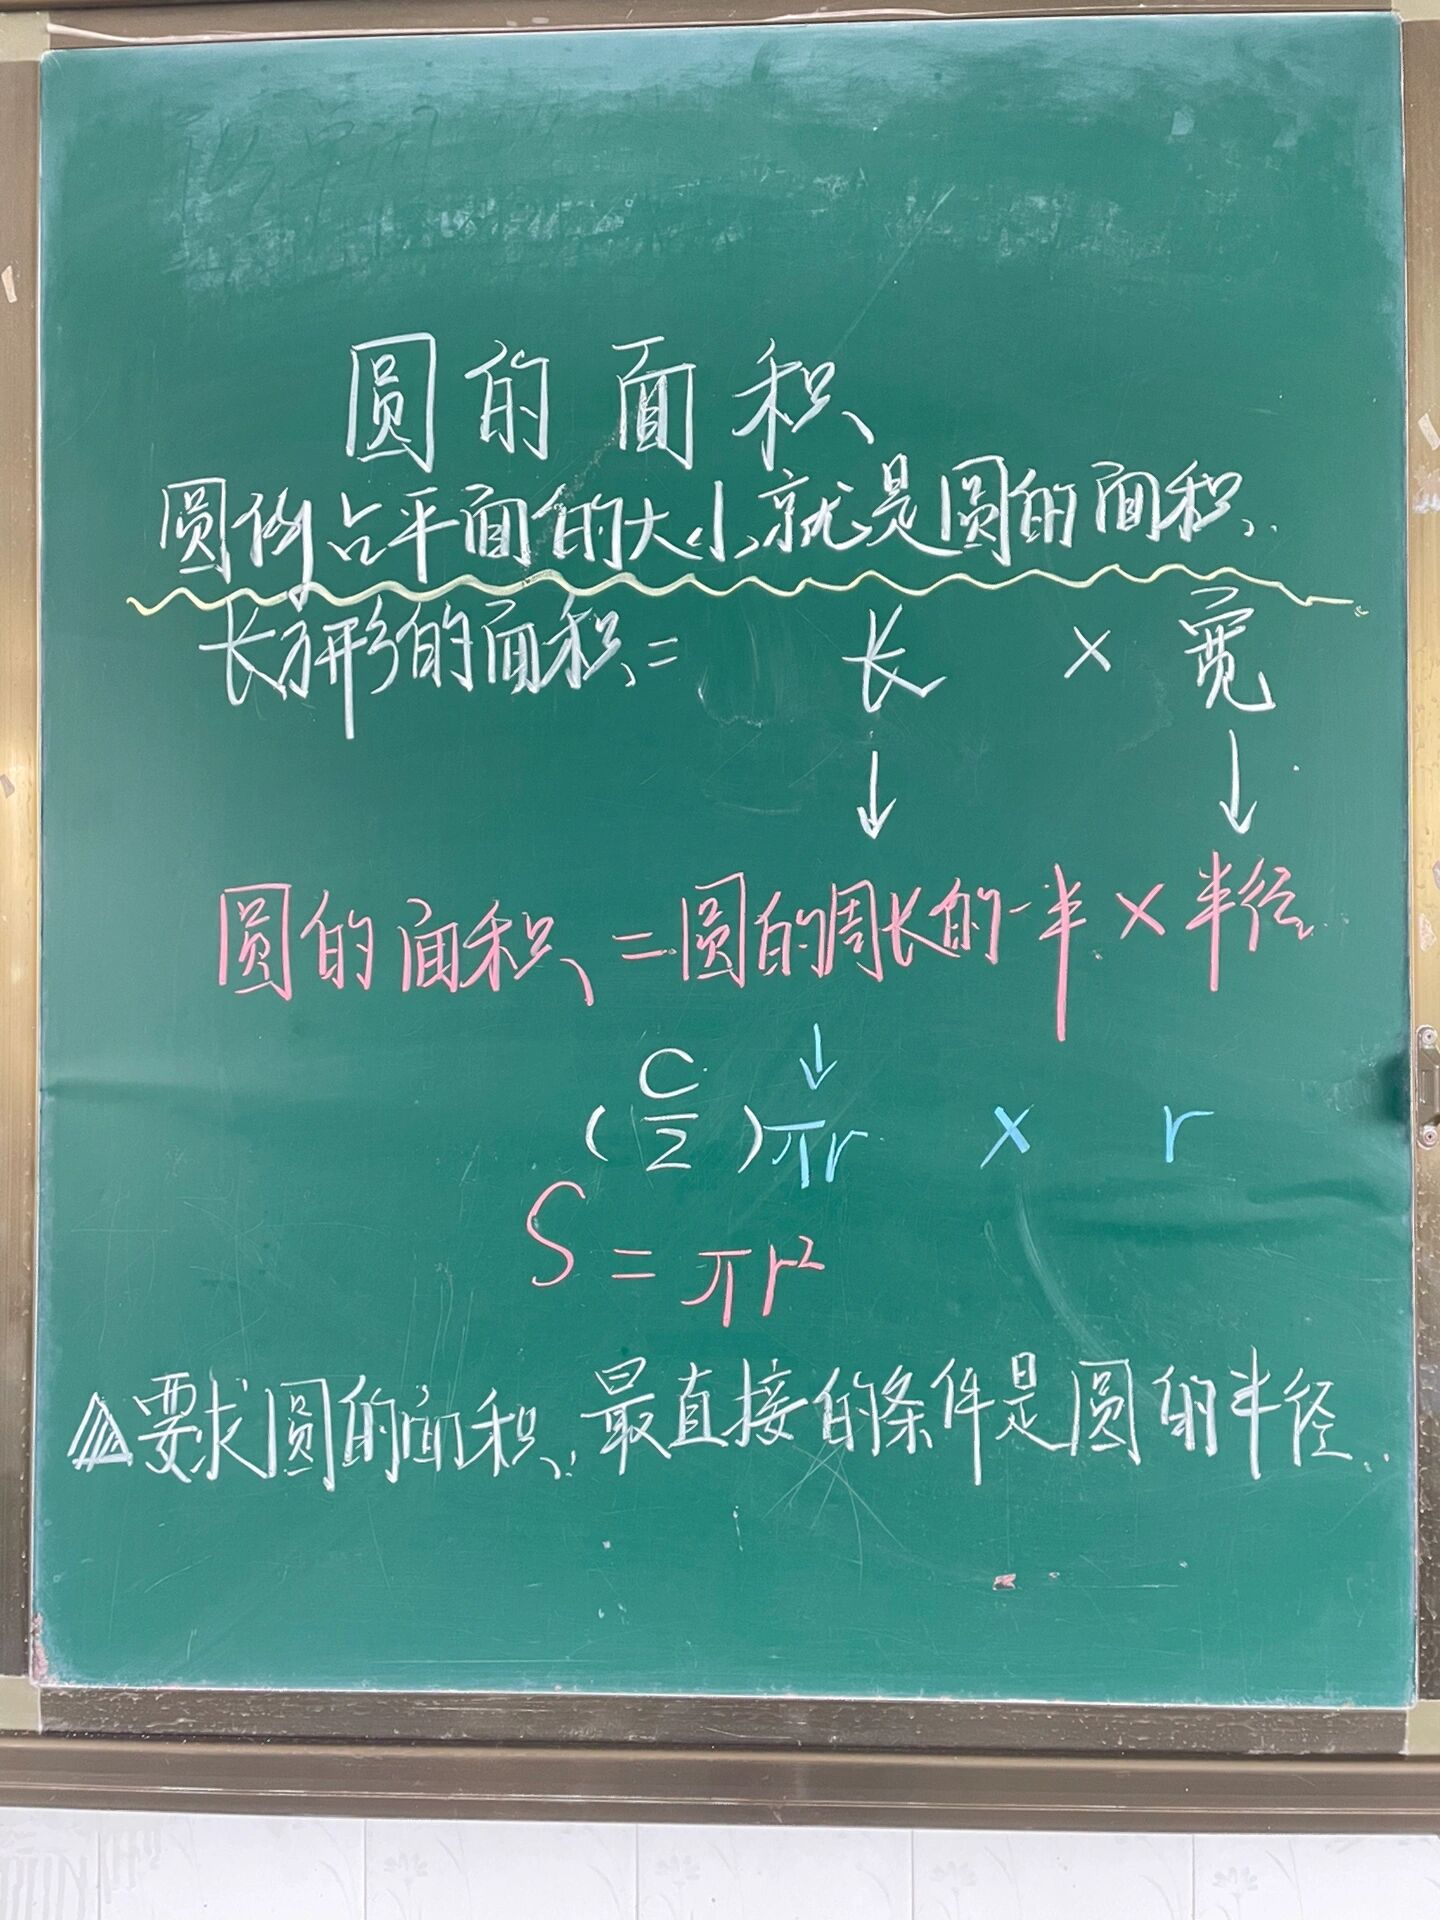 圆的面积
圆所占平面的大小就是圆的面积.
长方形的面积= 长 × 宽
↓ ↓
圆的面积=圆的周长的一半×半径.
↓
(C/2)πr × r
S=πr²
△要求圆的面积,最直接的条件是圆的半径.